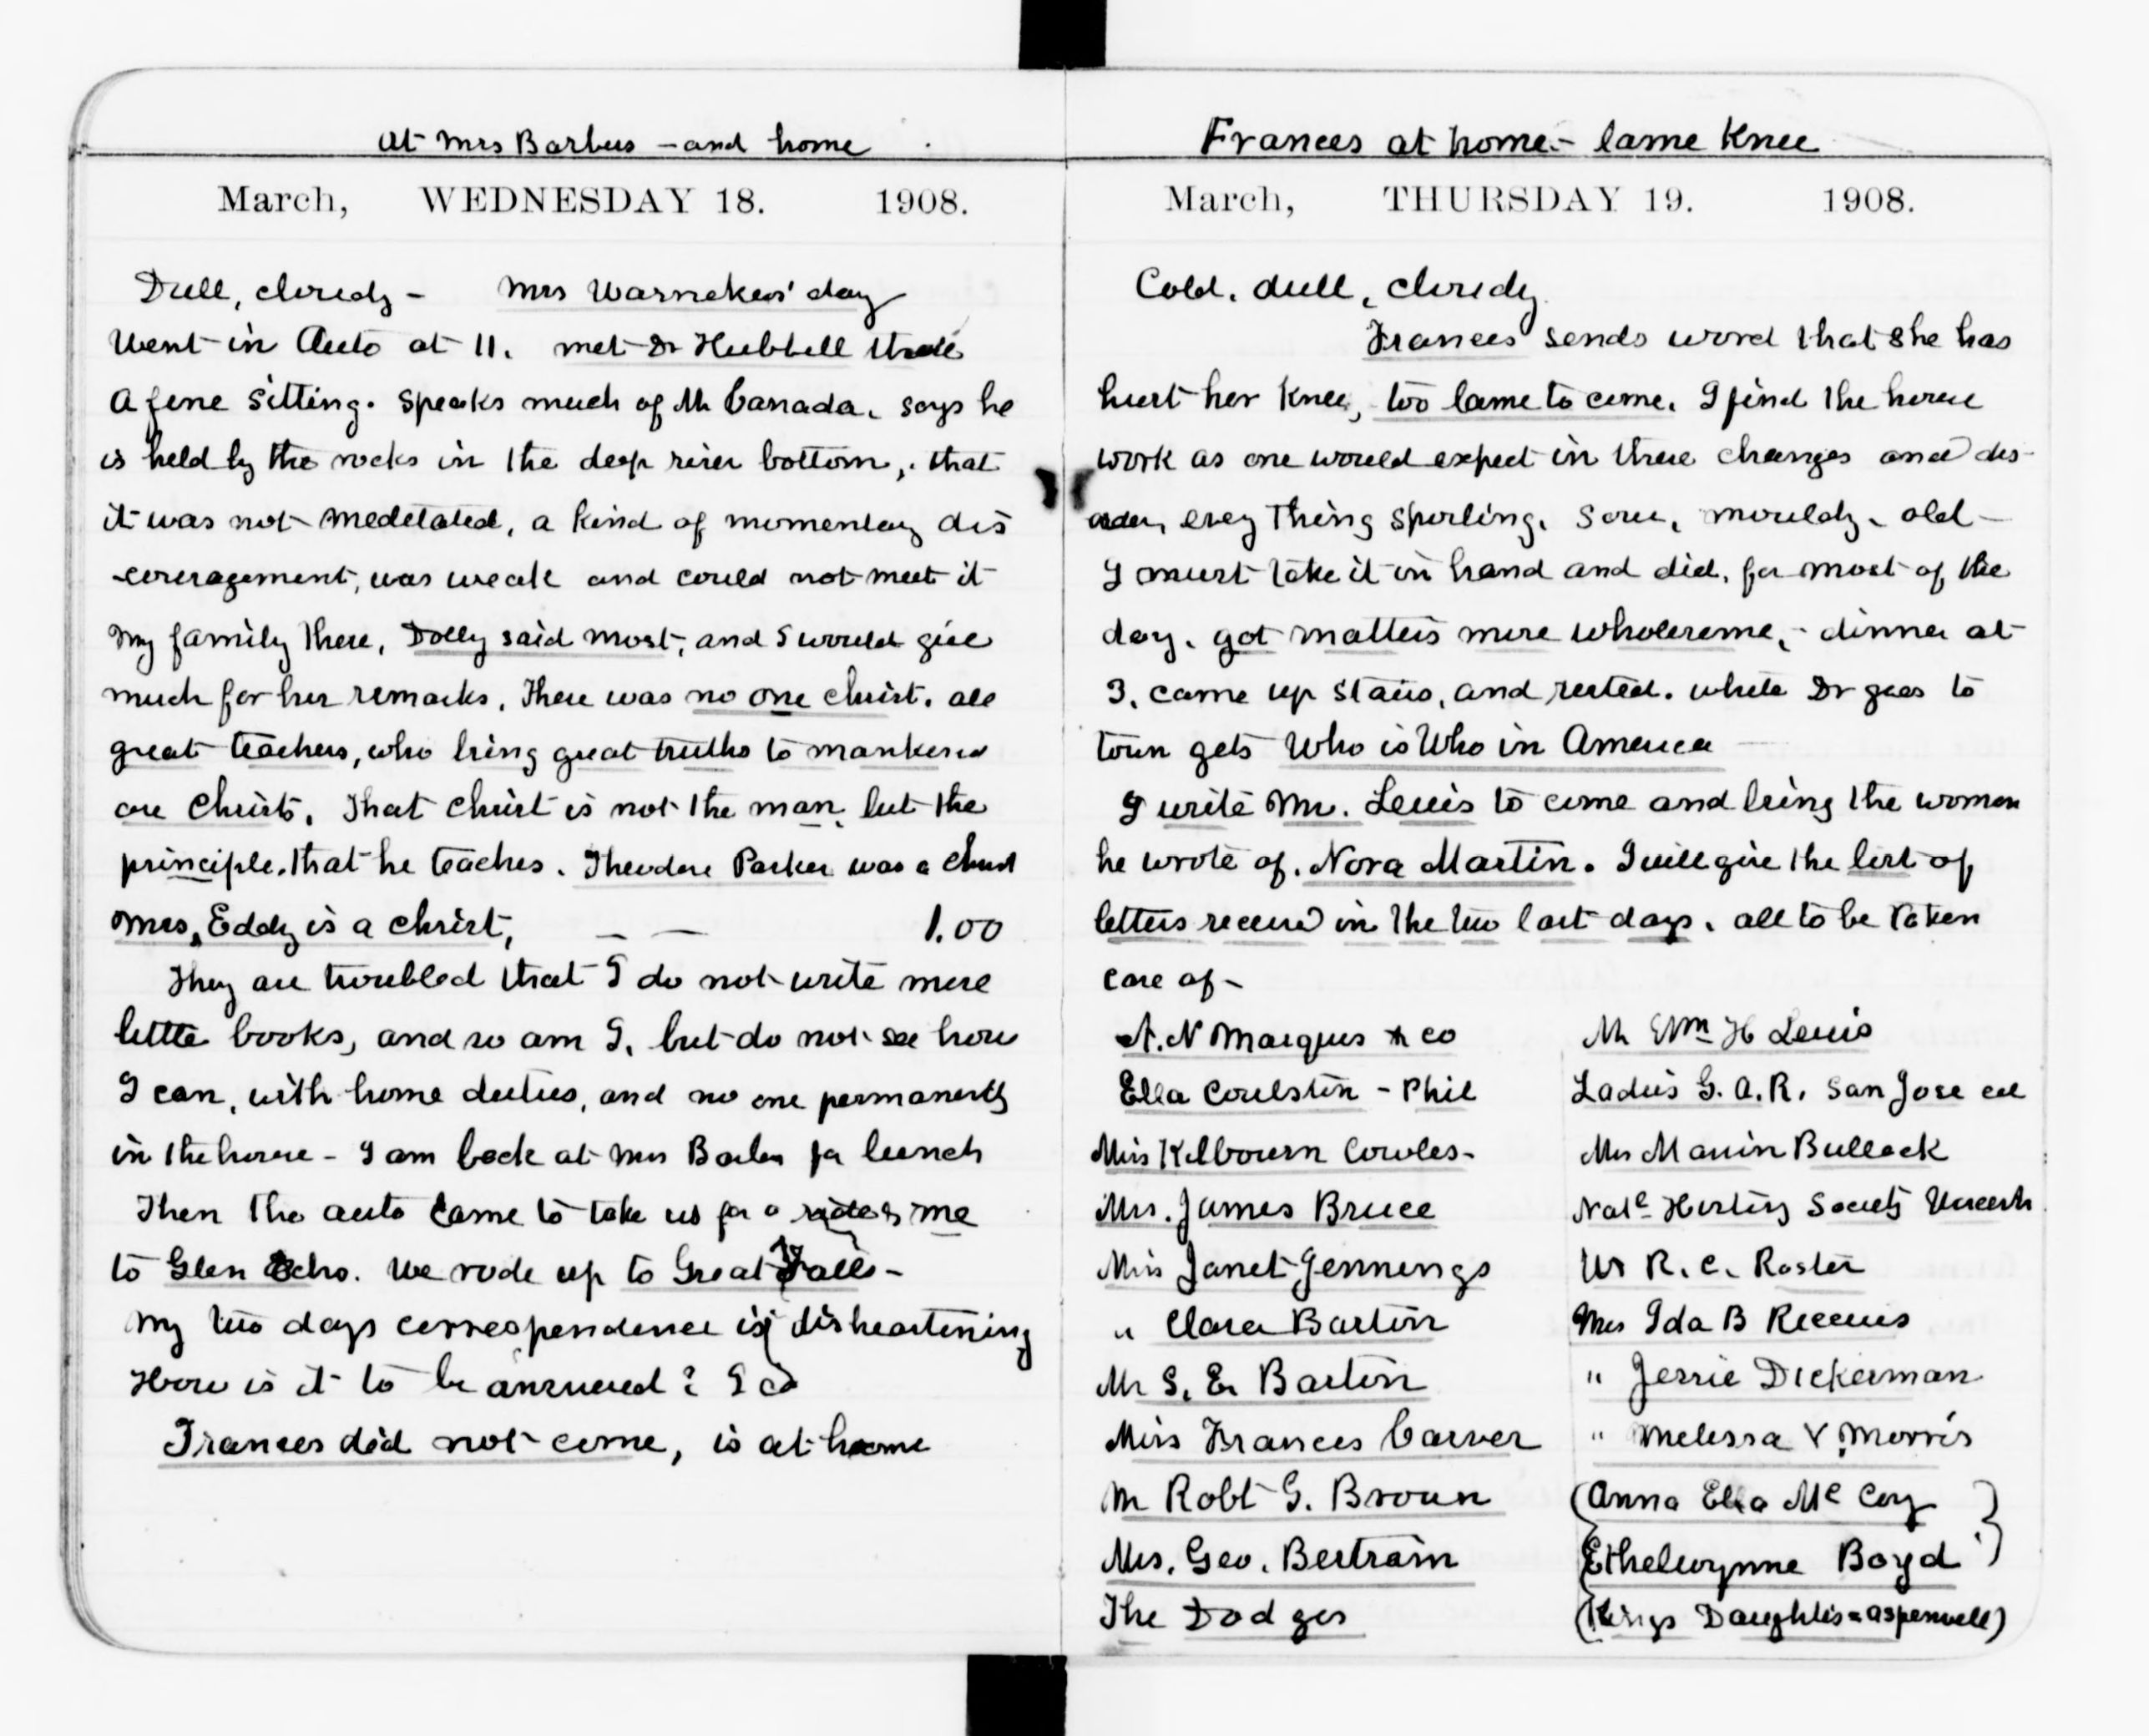 At Mrs Barbers - and home
March, WEDNESDAY 18. 1908.
Dull, cloudy - Mrs Warnekes' day
Went in Auto at 11. met Dr Hubbell
A fine sitting. Speaks much of Mr Canada, says he
is held by the rocks in the deep river bottom, that
it was not meditated, a kind of momentary dis
-couragement, was weak and could not meet it
My family there, Dolly said most, and I would give
much for her remarks. There was no one Christ. all
great teachers, who bring great truths to mankind
are Christs. That Christ is not the man, but the
principle that he teaches. Theodore Parker was a Christ
Mrs. Eddy is a Christ, — — 1.00
They are troubled that I do not write more
little books, and so am I, but do not see how
I can, with home duties, and no one permanently
in the house - I am back at Mrs Barber for lunch
Then the auto came to take us for a ride & me
to Glen Echo. We rode up to Great Falls -
My two days correspondence is disheartening
How is it to be answered?
Frances did not come, is at home
Frances at home - lame Knee
March, THURSDAY 19. 1908.
Cold, dull, cloudy.
Frances sends word that she has
hurt her Knee, too lame to come. I find the house
work as one would expect in these changes and dis-
order, every thing spoiling. Sour, mouldy, old -
I must take it in hand and did, for most of the
day, got matters more wholesome, - dinner at
3, came up stairs, and rested. while Dr goes to
town gets Who is Who in America
I write Mr. Lewis to come and bring the woman
he wrote of. Nora Martin. I will give the list of
letters received in the two last days, all to be taken
care of -
A. N Marquis & co
Ella Coulston - Phil
Miss Kilbourn Cowles -
Mrs. James Bruce
Miss Janet Jennings
" Clara Barton
Mr S. E. Barton
Miss Frances Carver
Mr Robt G. Brown
Mrs. Geo. Bertram
The Dodges
Mr Wm H Lewis
Ladies G. A. R. San Jose cal
Mrs Bullock
Natl Society
R. C.
Mrs Ida B
" Jessie Dickerman
" Melissa V. Morris
(Anna Ella Mc Coy
Ethelwynne Boyd
(Kings Daughters = aspenwell)